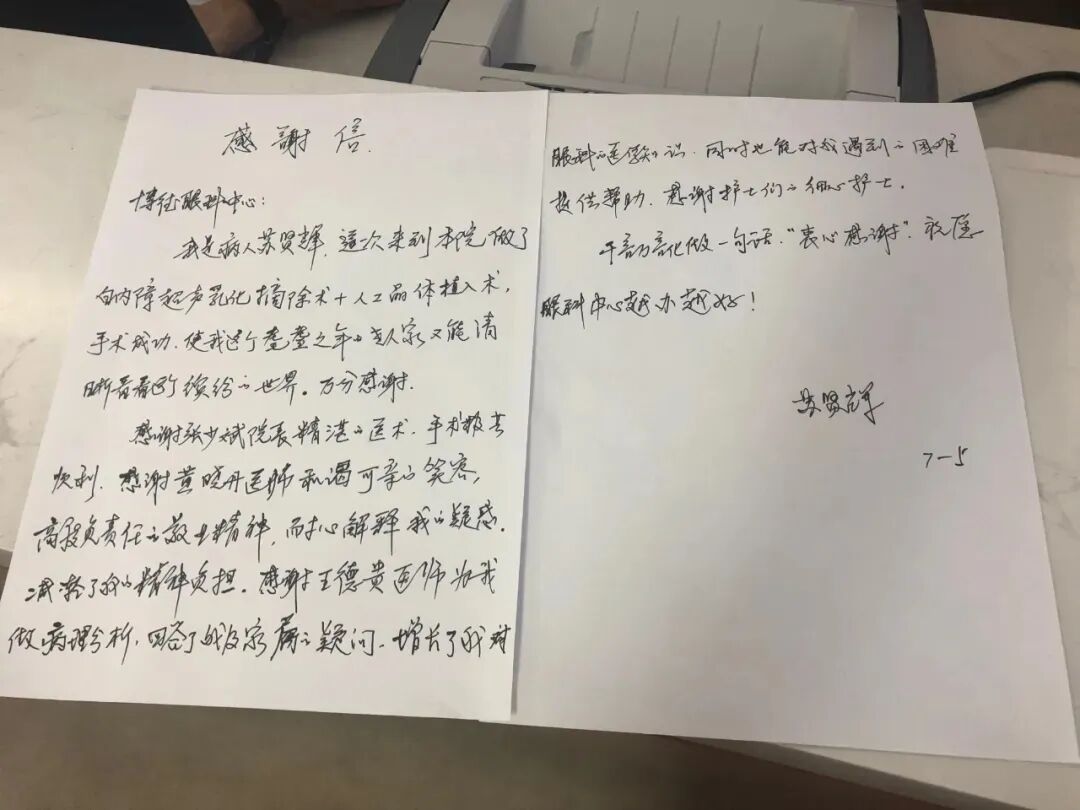 感謝信.
博德眼科中心:
我是病人苏贤辉,這次来到本院做了
白内障超声乳化摘除术+人工晶体植入术,
手术成功.使我这个耄耋之年的老人家又能清
晰看看这个缤纷的世界。万分感谢.
感谢张少斌院长精湛的医术.手术极其
顺利.感谢黄晓丹医师和谒可亲的笑容,
高段负责任的敬业精神,而心解释我的疑惑.
减轻了我的精神负担.感谢王德贵医师为我
做病理分析,回答了我及家属的疑问.增长了我对
眼科的医学知识.同时也能对我遇到的困难
提供帮助.感谢护士们的细心护士.
千言万言化做一句话."衷心感谢".祝德
眼科中心越办越好!
苏贤辉
7-5